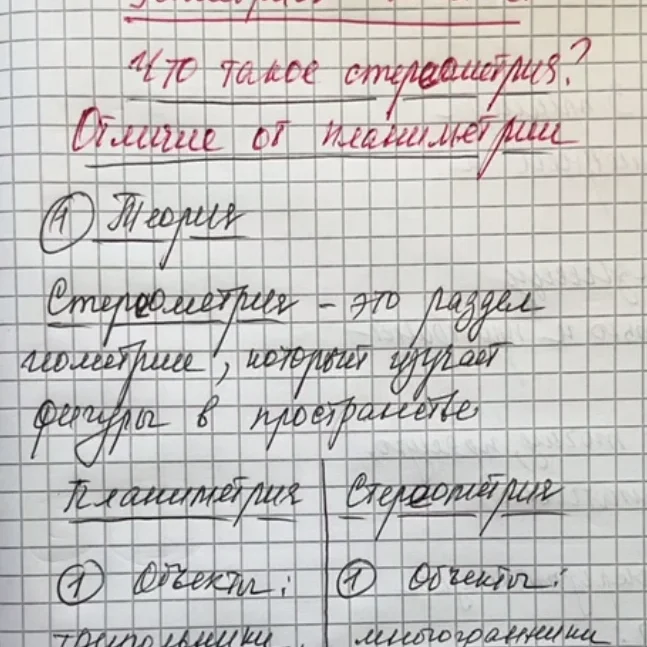 Что такое стереометрия?
Отличие от планиметрии
1 Теория
Стереометрия - это раздел
геометрии, который изучает
фигуры в пространстве
Планиметрия | Стереометрия
1 Объекты: | 1 Объекты:
треугольники, | многогранники